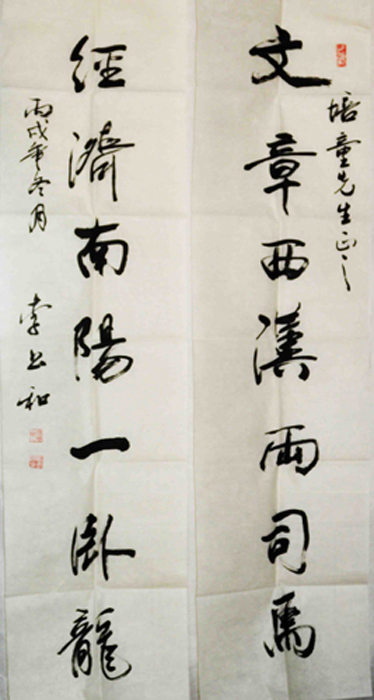 文章西漢兩司馬
培童先生正之
經濟南陽一臥龍
丙戌年冬月
李書和